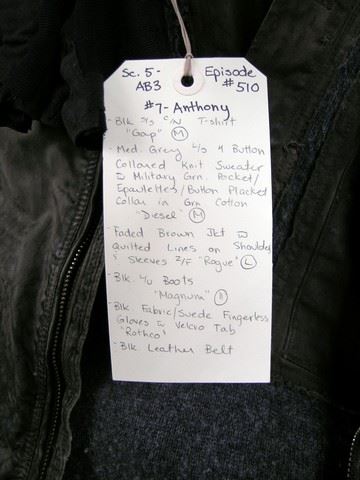 Sc. 5 -
AB3
Episode
#510
#7 - Anthony
- Blk S/S C/N T-shirt
"Gap" (M)
- Med. Grey L/S 4 Button
Collared Knit Sweater
w Military Grn. Pocket/
Epaulettes/Button Placket
Collar in Grn Cotton
"Diesel" (M)
- Faded Brown Jkt w
Quilted Lines on Shoulder
Sleeves Z/F "Rogue" (L)
- Blk. L/U Boots
"Magnum"
- Blk. Fabric/Suede Fingerless
Gloves w Velcro Tab
"Rothco"
- Blk Leather Belt